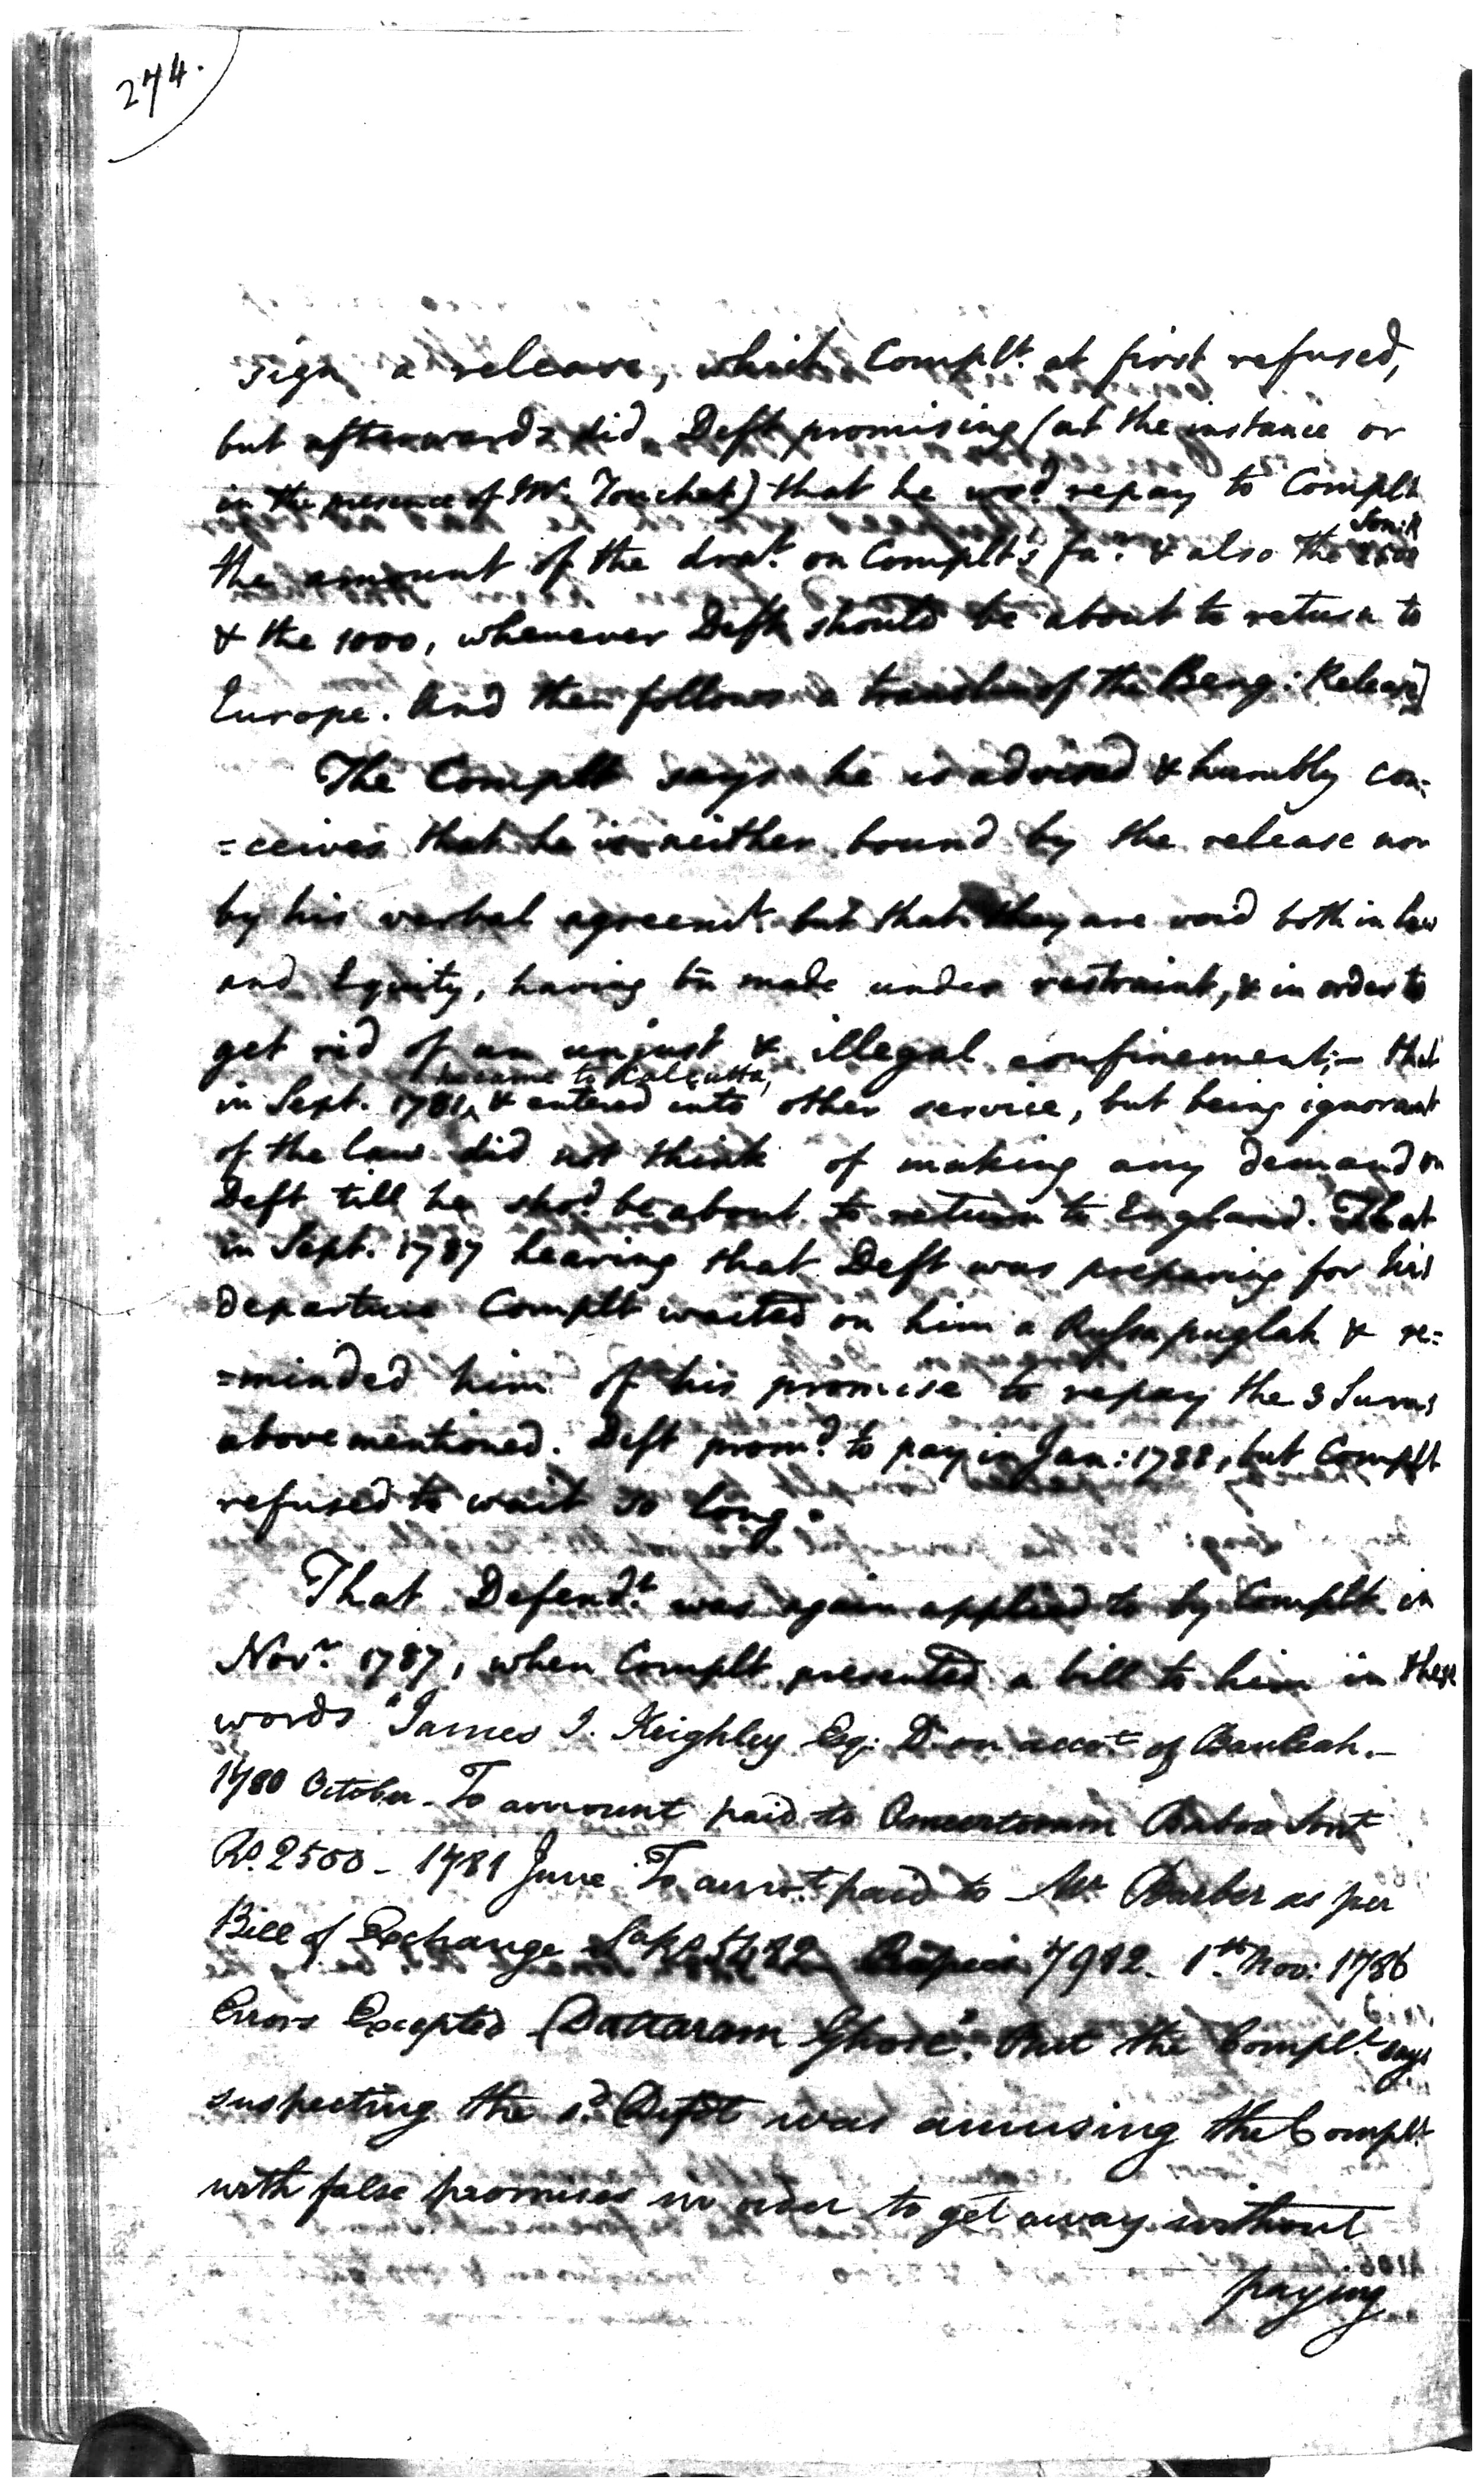 274.
sign a release, which Complt. at first refused,
but afterwards did, Deft promising (at the instance or
in the presence of Mr. Touchet) that he wod. repay to Complt
the amount of the drat. on Complt's fa.r & also the Son: R 2500
& the 1000, whenever Deft should be about to return to
Europe. And then follows a translon of the Beng: Release]
The Complt says he is advised & humbly con:
=ceives that he is neither bound by the release nor
by his verbal agreemt. but that they are void both in law
and Equity, having bn made under restraint, & in order to
get rid of an unjust & illegal confinement;– that
in Sept. 1781, he came to Calcutta, & entered into other service, but being ignorant
of the law did not think of making any demand on
Deft till he shod. be about to return to England. That
in Sept. 1787 hearing that Deft was preparing for his
departure Complt waited on him a Russapuglah & re=
=minded him of his promise to repay the 3 Sums
above mentioned. Deft promd. to pay in Jan: 1788, but Complt
refused to wait so long.
That Defendt. was again applied to by Complt. in
Novr. 1787, when Complt presented a bill to him in these
words "James I. Keighley Esq: Dr on accot. of Bauleah.–
1780 October – To amount paid to Baboo Sont
Rs. 2500 – 1781 June To amot. paid to Mr Barber as per
Bill of Exchange 5482 Rupees 7982. 1st. Nov: 1786
Errors Excepted (Dattaram Ghose". But the Complt. says
suspecting the sd. Deft was amusing the Complt.
with false promises in order to get away without
paying